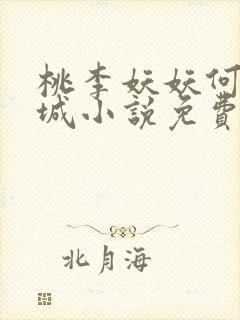 桃李妖妖何
城小說免費
北月海